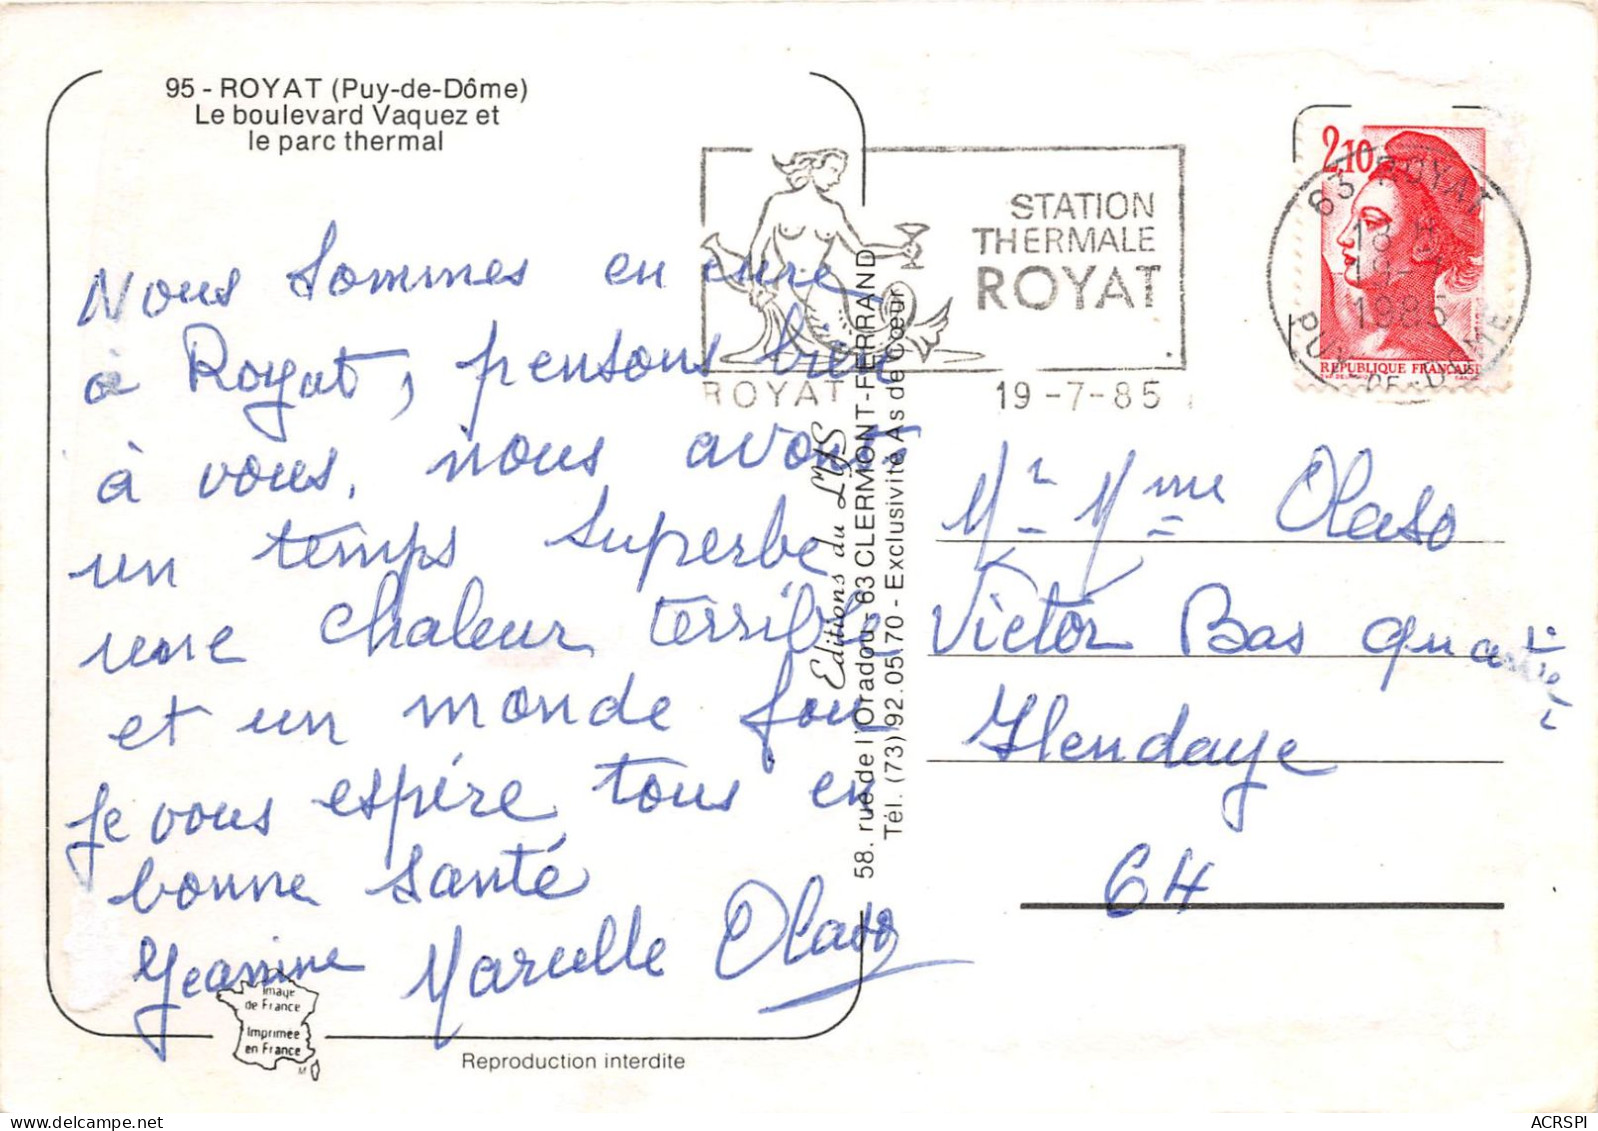 95 - ROYAT (Puy-de-Dôme)
Le boulevard Vaquez et
le parc thermal
Nous sommes en cure
à Royat, pensons bien
à vous, nous avons
un temps superbe
une chaleur terrible
et un monde fou
Je vous espère tous en
bonne santé
Jeanine Marcelle Olaso
Image
de France
Imprimée
en France
M
Reproduction interdite
Editions du LYS
58, rue de l'Oradou - 63 CLERMONT-FERRAND
Tél. (73) 92.05.70 - Exclusivité As de Cœur
STATION
THERMALE
ROYAT
ROYAT 19-7-85
2,10
REPUBLIQUE FRANCAISE
63 ROYAT
18 H
19-7
1985
PUY-DE-DOME
Mr Mme Olaso
Victor Bas quartier
Hendaye
64
ACRSPI